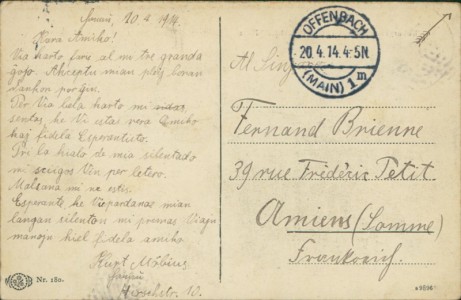 20.4.1914.
Kara Amiko!
Via karto faris al mi tre grandan
ĝojo. Akceptu mian plej koran
dankon por ĝin.
Per Via bela karto mi
sentas, ke Vi estas vera amiko
kaj fidela Esperantisto.
Pri la kialo de mia silentado
mi sciigos Vin per letero.
Malsana mi ne estis.
Esperante, ke Vi pardonas mian
longan silenton mi premas Viajn
manojn kiel fidela amiko
Kurt Möbius
Hirschstr. 10.
Nr. 180.
OFFENBACH
20.4.14.4-5N.
(MAIN) 1m
Al Sinjoro
Fernand Brienne
39 rue Frédéric Petit
Amiens (Somme)
Frankreich.